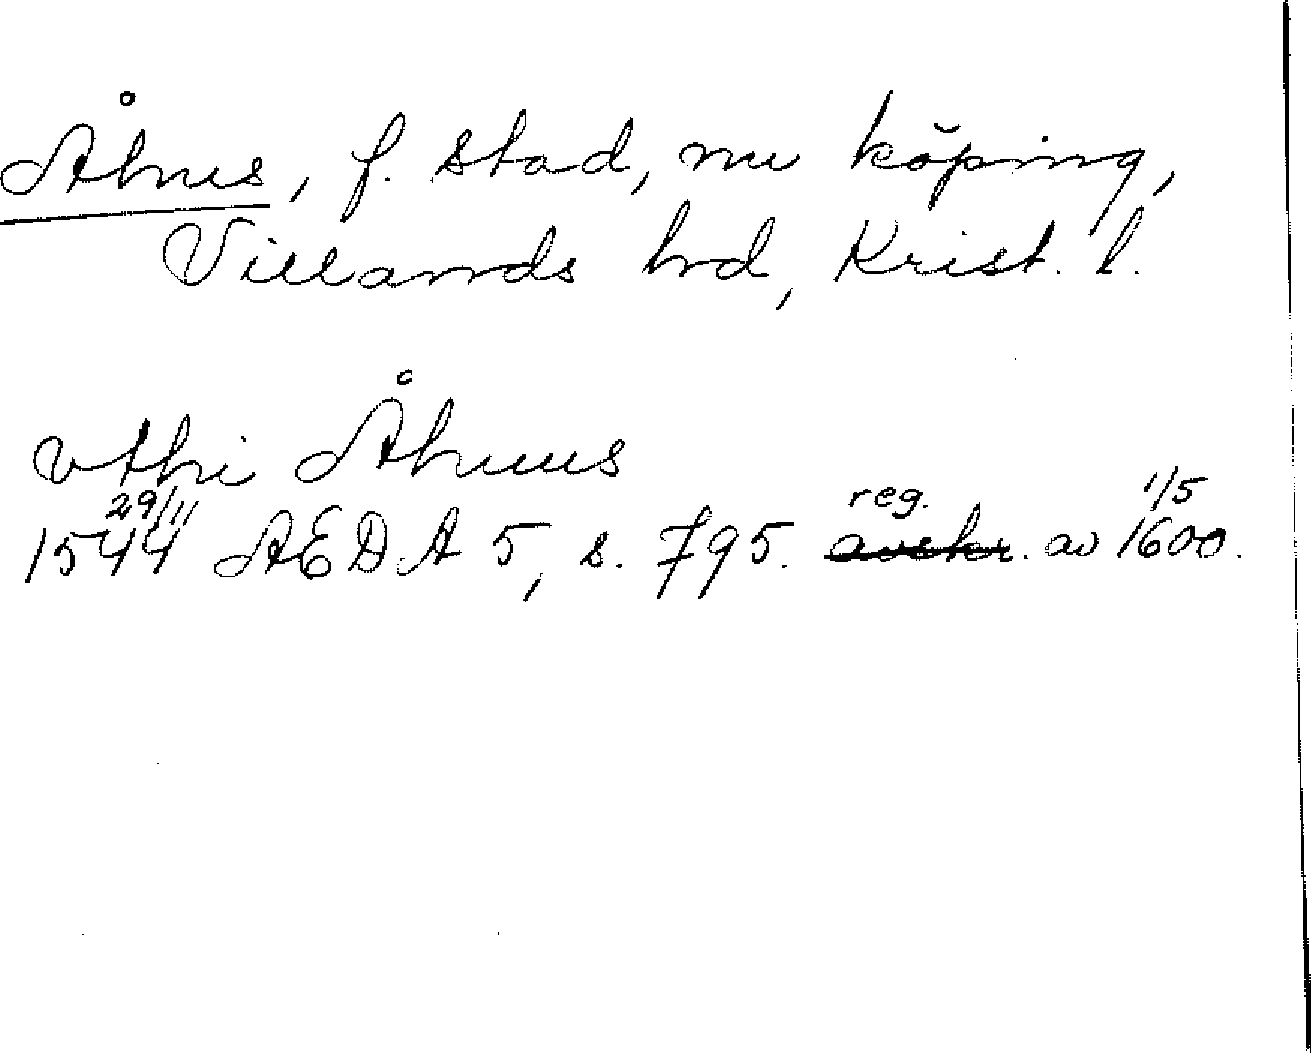 Åhus, f. stad, nu köping,
Villands hrd, Krist. l.
vthi Åhuus
29/11 reg. 1/5
1544 AEDA 5, s. 795. avskr. av 1600.